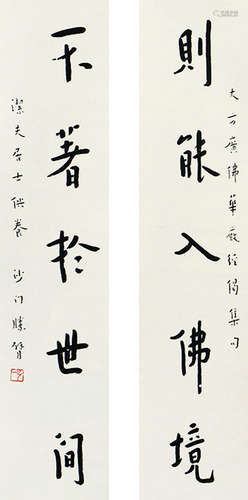 大方廣佛華嚴經偈集句
則能入佛境
不著於世間
潔夫居士供養 沙門勝臂